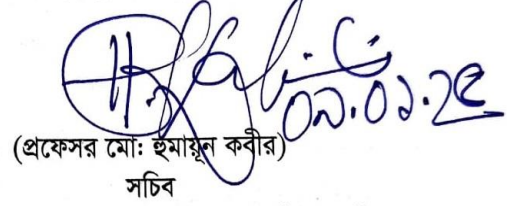 ০৯.০১.২৫
(প্রফেসর মো: হুমায়ূন কবীর)
সচিব